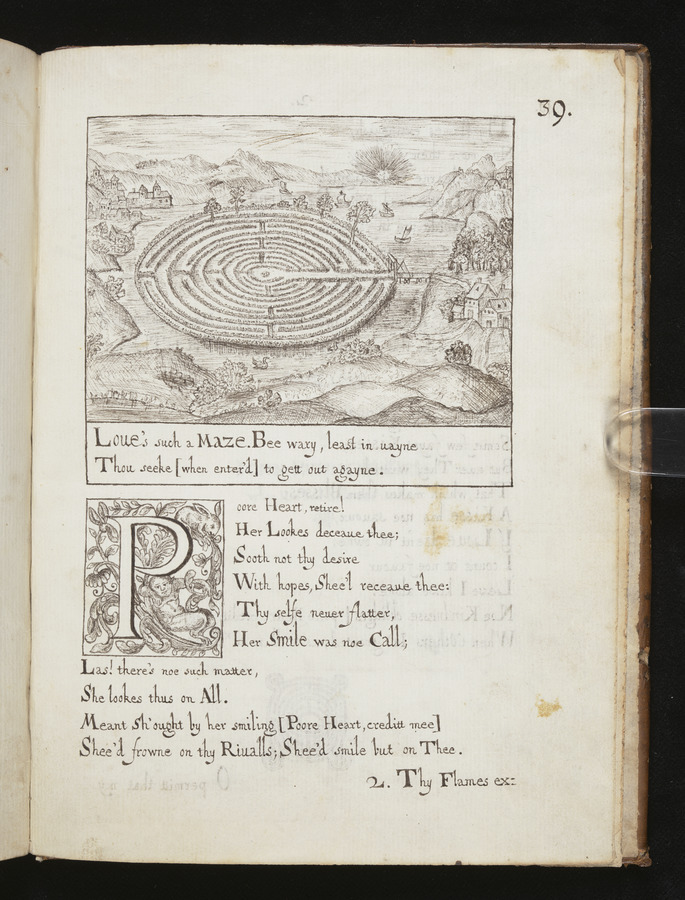 39.
Loue's such a Maze. Bee wary, least in uayne
Thou seeke [when enter'd] to gett out agayne.
Poore Heart, retire!
Her Lookes deceaue thee;
Sooth not thy desire
With hopes, Shee'l receaue thee:
Thy selfe neuer flatter,
Her Smile was noe Call;
Las! there's noe such matter,
She lookes thus on All.
Meant Sh'ought by her smiling [Poore Heart, creditt mee]
Shee'd frowne on thy Riualls; Shee'd smile but on Thee.
2. Thy Flames ex: